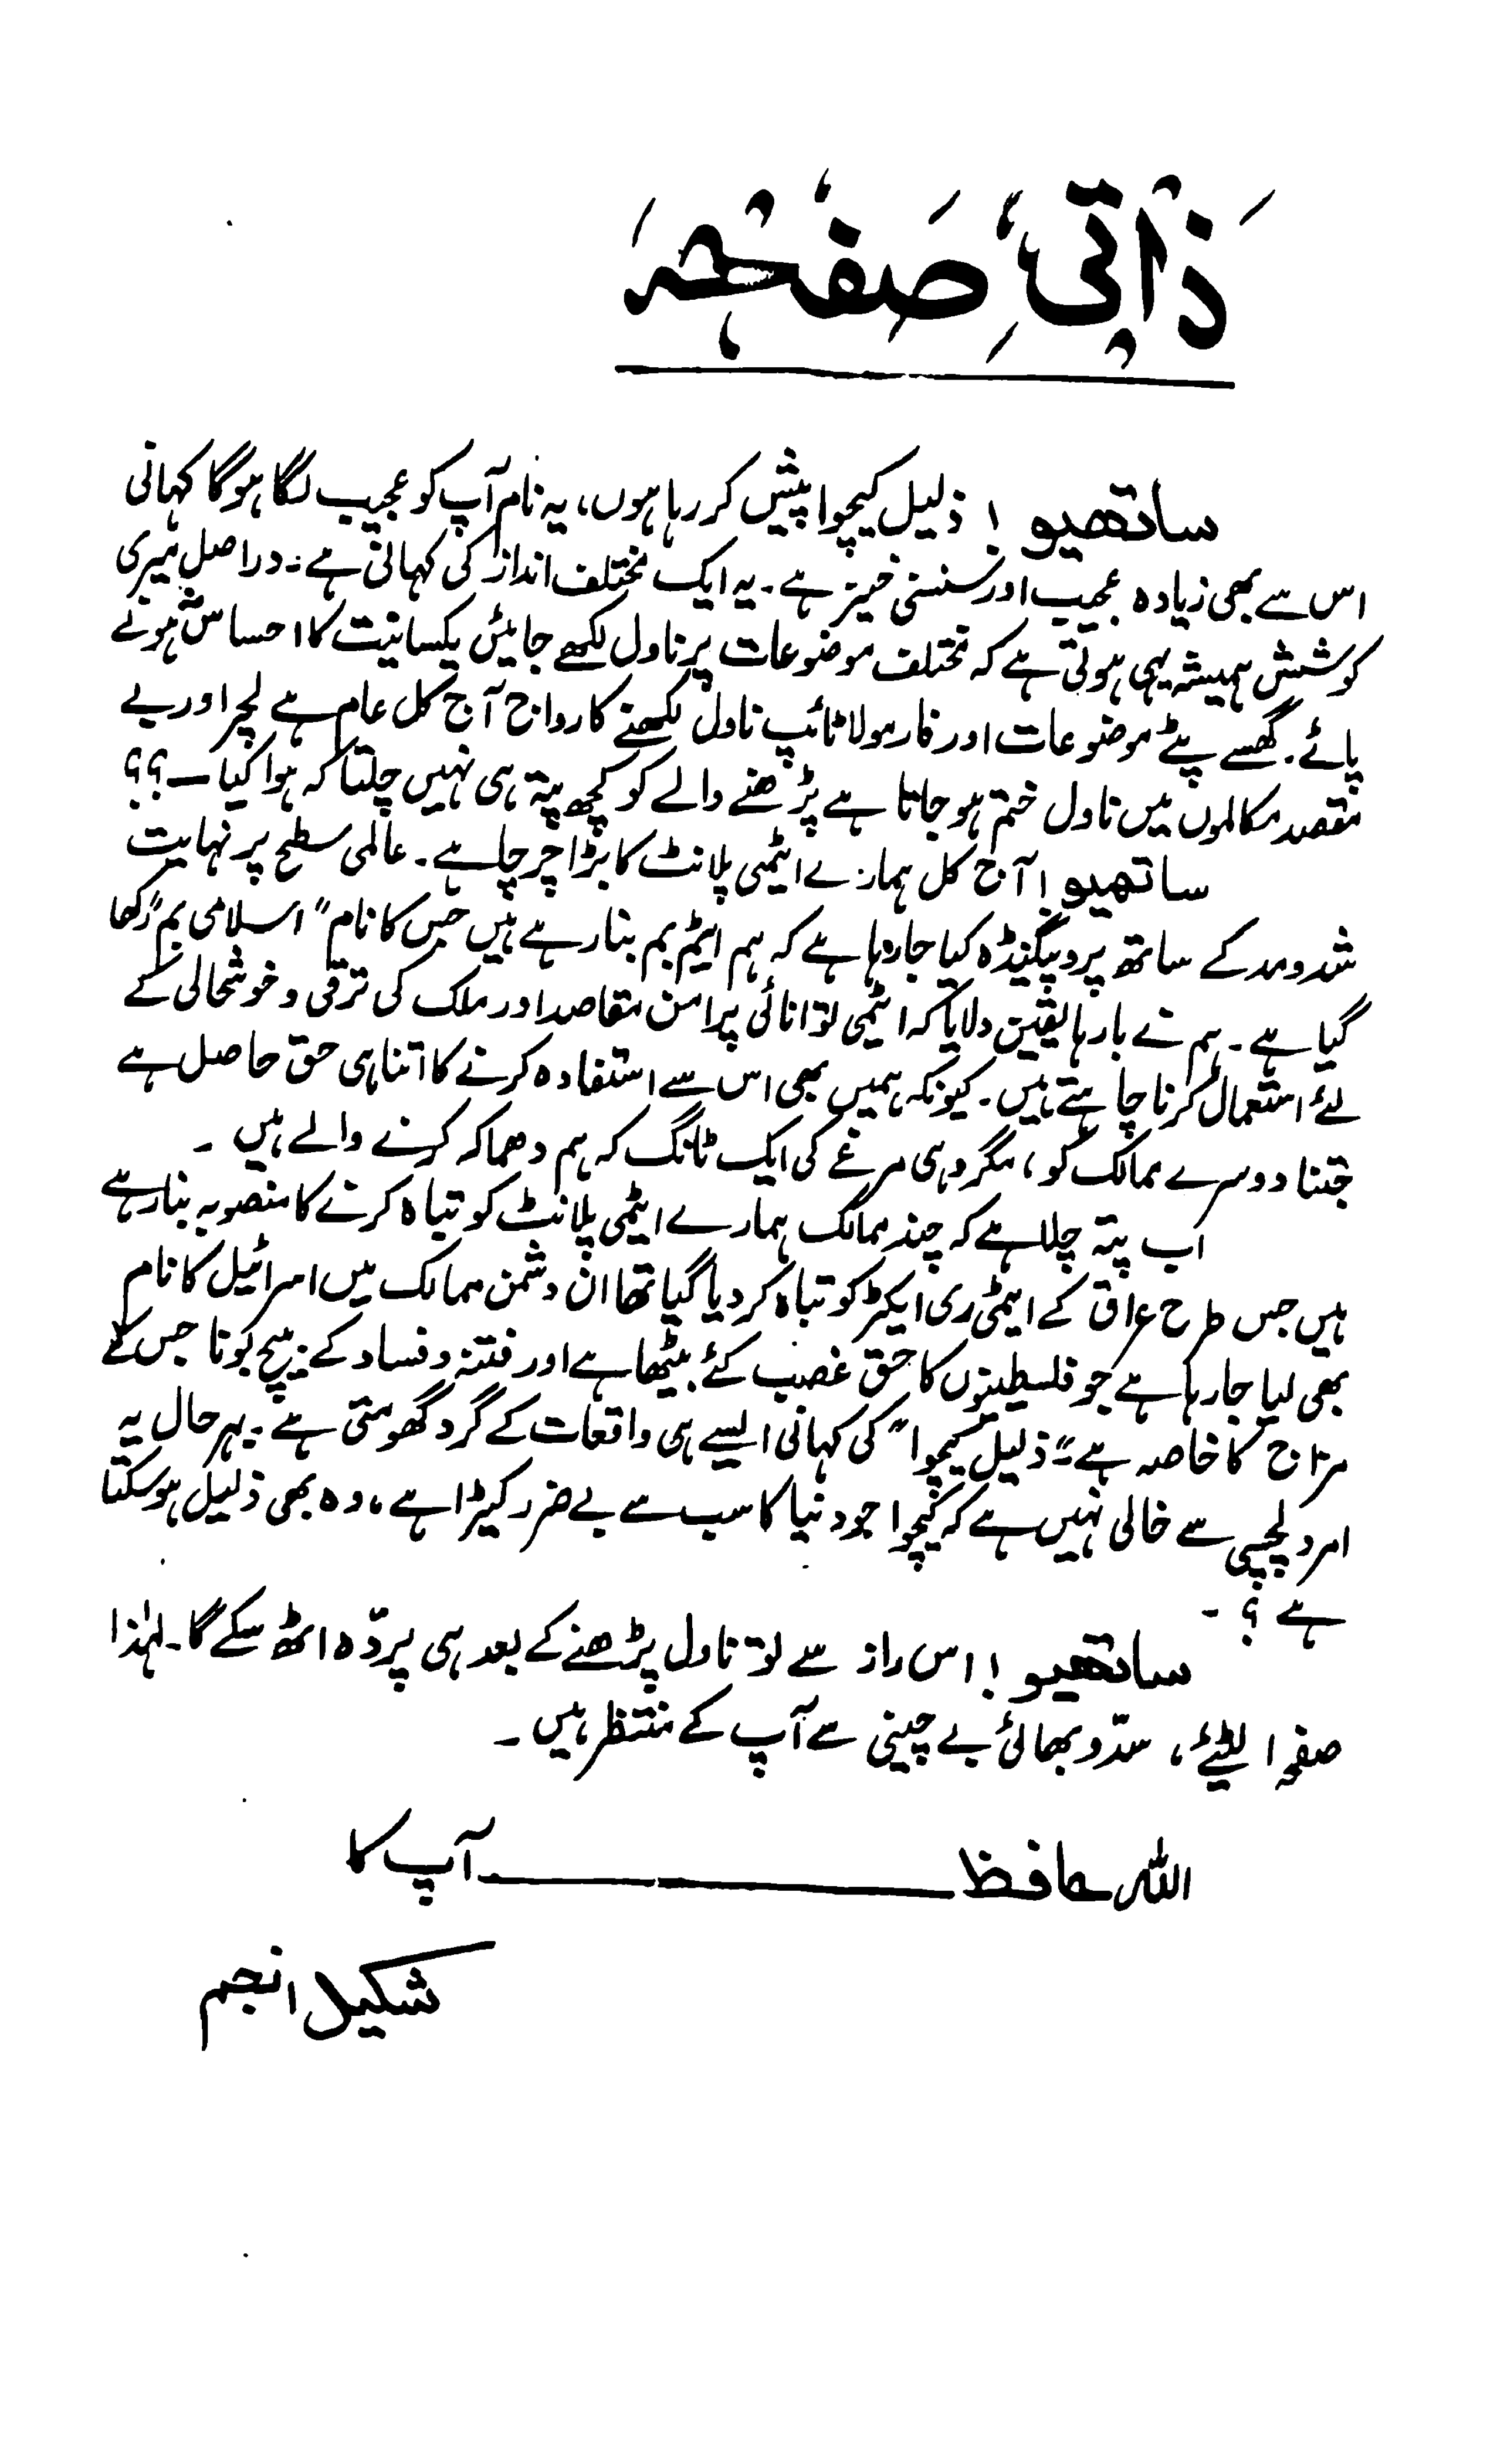 ذاتی صفحہ
ساتھیو! ذلیل کیچوا پیش کر رہا ہوں، یہ نام آپ کو عجیب لگا ہوگا کہانی
اس سے بھی زیادہ عجیب اور سنسنی خیز ہے۔ یہ ایک مختلف انداز کی کہانی ہے۔ دراصل میری
کوشش ہمیشہ یہی ہوتی ہے کہ مختلف موضوعات پر ناول لکھے جائیں یکسانیت کا احساس نہ ہونے
پائے۔ گھسے پٹے موضوعات اور فارمولا ٹائپ ناول لکھنے کا رواج آج کل عام ہے لچر اور بے
مقصد مکالموں میں ناول ختم ہو جاتا ہے پڑھنے والے کو کچھ پتہ ہی نہیں چلتا کہ ہوا کیا ـــ؟؟
ساتھیو! آج کل ہمارے ایٹمی پلانٹ کا بڑا چرچا ہے۔ عالمی سطح پر نہایت
شد و مد کے ساتھ پروپیگنڈہ کیا جا رہا ہے کہ ہم ایٹم بم بنا رہے ہیں جس کا نام "اسلامی بم" رکھا
گیا ہے۔ ہم نے بارہا یقین دلایا کہ ایٹمی توانائی پرامن مقاصد اور ملک کی ترقی و خوشحالی کے
لئے استعمال کرنا چاہتے ہیں۔ کیونکہ ہمیں بھی اس سے استفادہ کرنے کا اتنا ہی حق حاصل ہے
جتنا دوسرے ممالک کو، مگر وہی مرغے کی ایک ٹانگ کہ ہم دھماکہ کرنے والے ہیں۔
اب پتہ چلا ہے کہ چند ممالک ہمارے ایٹمی پلانٹ کو تباہ کرنے کا منصوبہ بنا رہے
ہیں جس طرح عراق کے ایٹمی ری ایکٹر کو تباہ کر دیا گیا تھا ان دشمن ممالک میں اسرائیل کا نام
بھی لیا جا رہا ہے جو فلسطینوں کا حق غصب کئے بیٹھا ہے اور فتنہ و فساد کے بیج بونا جس کے
مزاج کا خاصہ ہے "ذلیل کیچوا" کی کہانی ایسے ہی واقعات کے گرد گھومتی ہے۔ بہرحال یہ
امر دلچسپی سے خالی نہیں ہے کہ کیچوا جو دنیا کا سب سے بے ضرر کیڑا ہے، وہ بھی ذلیل ہو سکتا
ہے؟۔
ساتھیو! اس راز سے تو ناول پڑھنے کے بعد ہی پردہ اٹھ سکے گا۔ لہٰذا
صفحہ الٹیئے، سدّو بھائی بے چینی سے آپ کے منتظر ہیں۔
اللہ حافظ ـــــــــــــــــ آپ کا
شکیل انجم